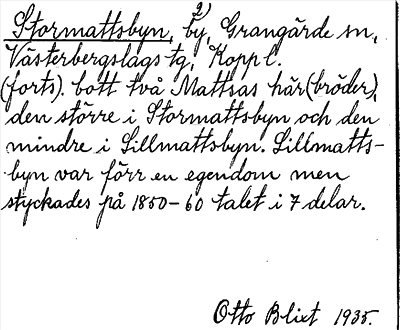 2)
Stormattsbyn, by, Grangärde sn,
Västerbergslags tg, Kopp l.
(forts). bott två Mattsas här (bröder),
den större i Stormattsbyn och den
mindre i Lillmattsbyn. Lillmatts-
byn var förr en egendom men
styckades på 1850-60 talet i 7 delar.
Otto Blixt 1935.